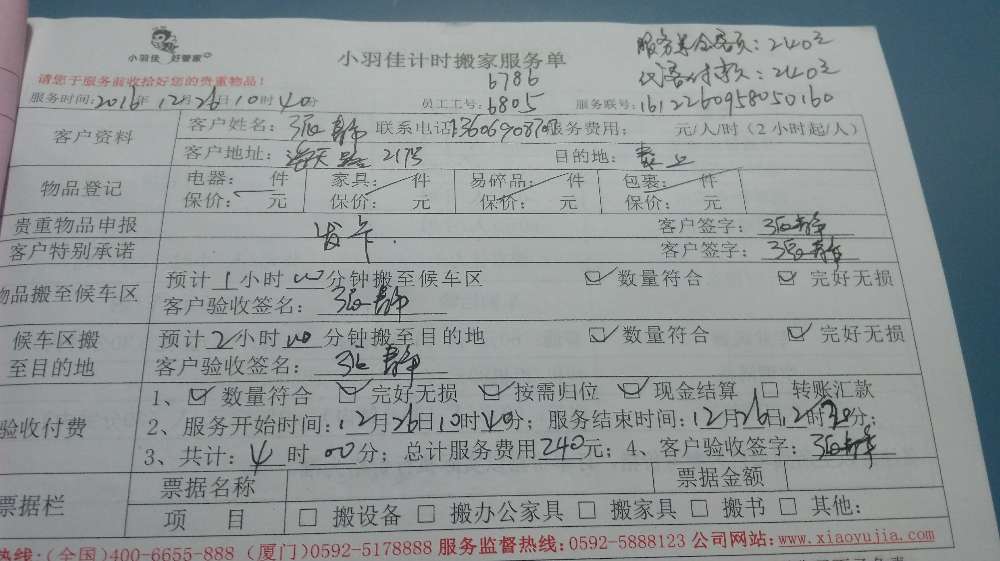 小羽佳 好管家
小羽佳计时搬家服务单
服务单金额：240元
代客付款：240元
请您于服务前收拾好您的贵重物品！
6786
服务时间：2016年12月26日10时40分 员工工号：6805 服务联号：1612260958050160
客户资料 客户姓名：张静 联系电话 服务费用： 元/人/时（2小时起/人）
客户地址： 217号 目的地：
物品登记 电器： 件 家具： 件 易碎品： 件 包裹： 件
保价： 元 保价： 元 保价： 元 保价： 元
贵重物品申报 发卡. 客户签字：张静
客户特别承诺 客户签字：张静
物品搬至候车区 预计1小时00分钟搬至候车区 ☑数量符合 ☑完好无损
客户验收签名：张静
候车区搬至目的地 预计2小时00分钟搬至目的地 ☑数量符合 ☑完好无损
客户验收签名：张静
验收付费 1、☑数量符合 ☑完好无损 ☑按需归位 ☑现金结算 □转账汇款
2、服务开始时间：12月26日10时40分；服务结束时间：12月26日12时30分；
3、共计：4时00分；总计服务费用240元；4、客户验收签字：张静
票据栏 票据名称 票据金额
项 目 □搬设备 □搬办公家具 □搬家具 □搬书 □其他：
热线：(全国)400-6655-888 (厦门)0592-5178888 服务监督热线：0592-5888123 公司网站：www.xiaoyujia.com